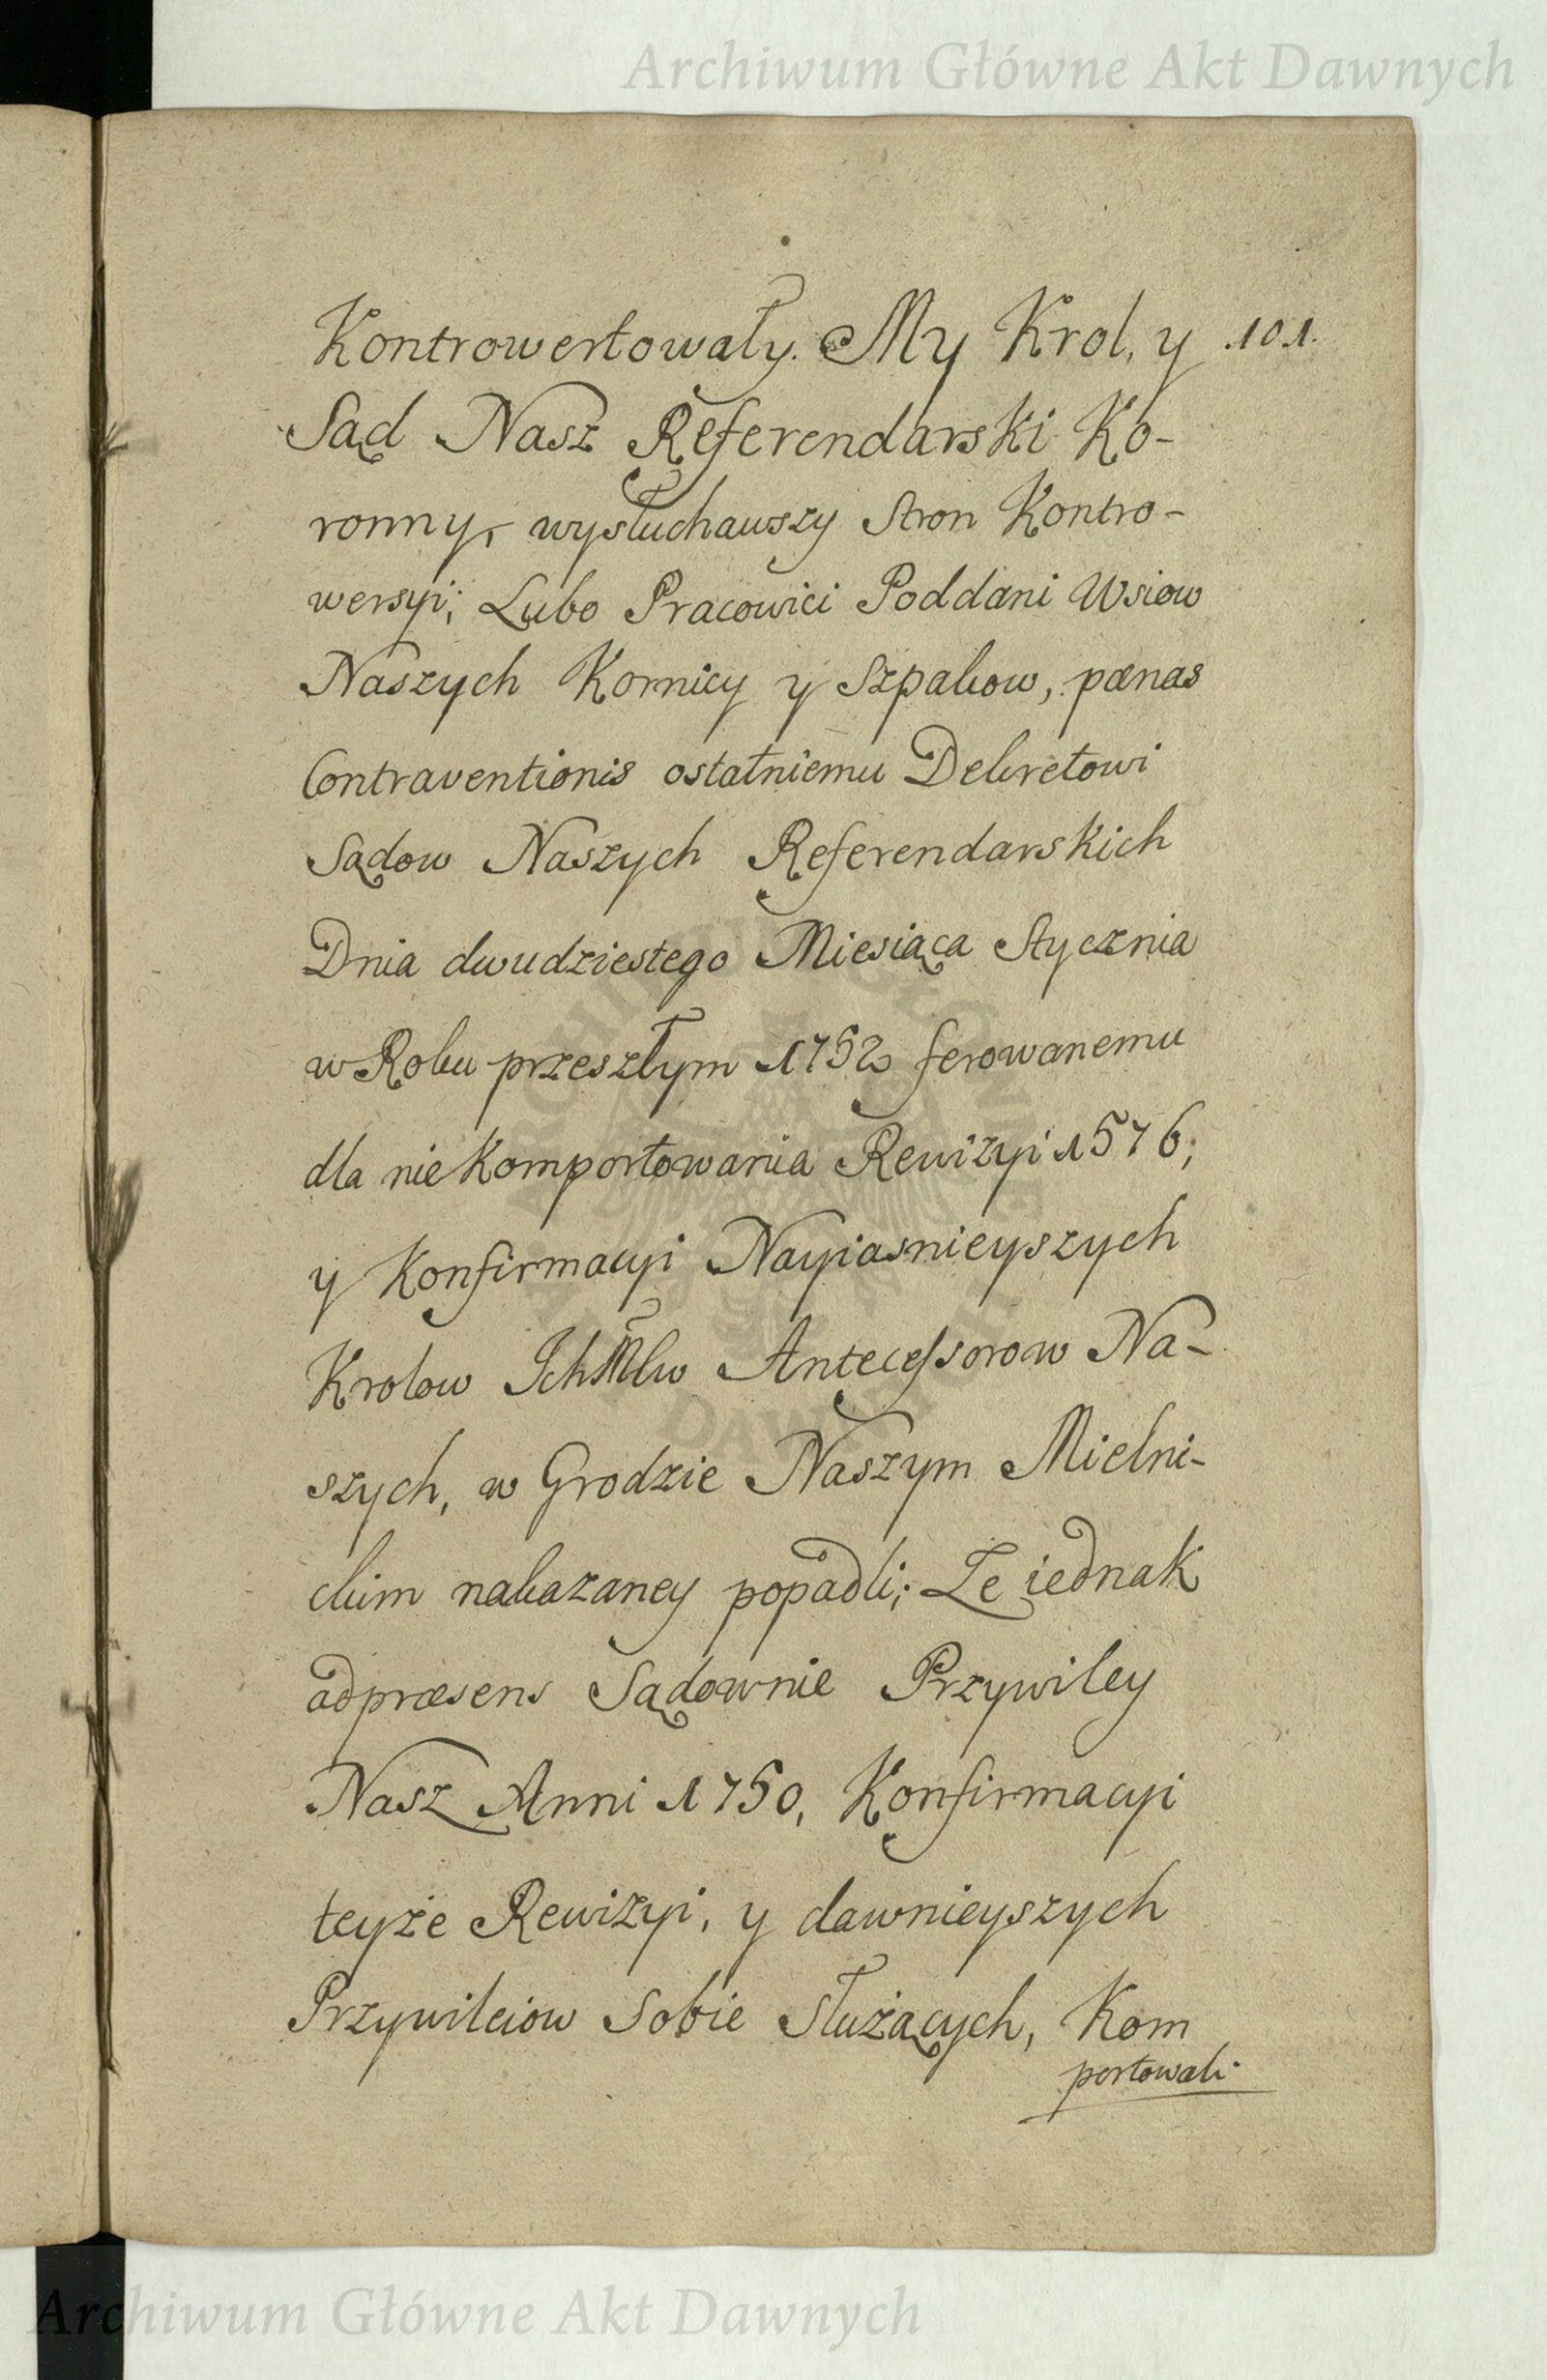 Archiwum Główne Akt Dawnych
Kontrowertowały. My Krol, y .101.
Sąd Nasz Referendarski Ko-
ronny, wysłuchawszy Stron Kontro-
wersyi; Lubo Pracowici Poddani Wsiow
Naszych Kornicy y Szpakow, pœnas
Contraventionis ostatniemu Dekretowi
Sądow Naszych Referendarskich
Dnia dwudziestego Miesiąca Stycznia
w Roku przeszłym 1752 ferowanemu
dla nie Komportowania Rewizyi 1576;
y Konfirmacyi Nayiasnieyszych
Krolow Ich Mlw Antecessorow Na-
szych, w Grodzie Naszym Mielni-
ckim nakazaney popadli; Ze iednak
ad præsens Sądownie Przywiley
Nasz Anni 1750, Konfirmacyi
teyże Rewizyi, y dawnieyszych
Przywileiow Sobie Służących, Kom
portowali
Archiwum Główne Akt Dawnych